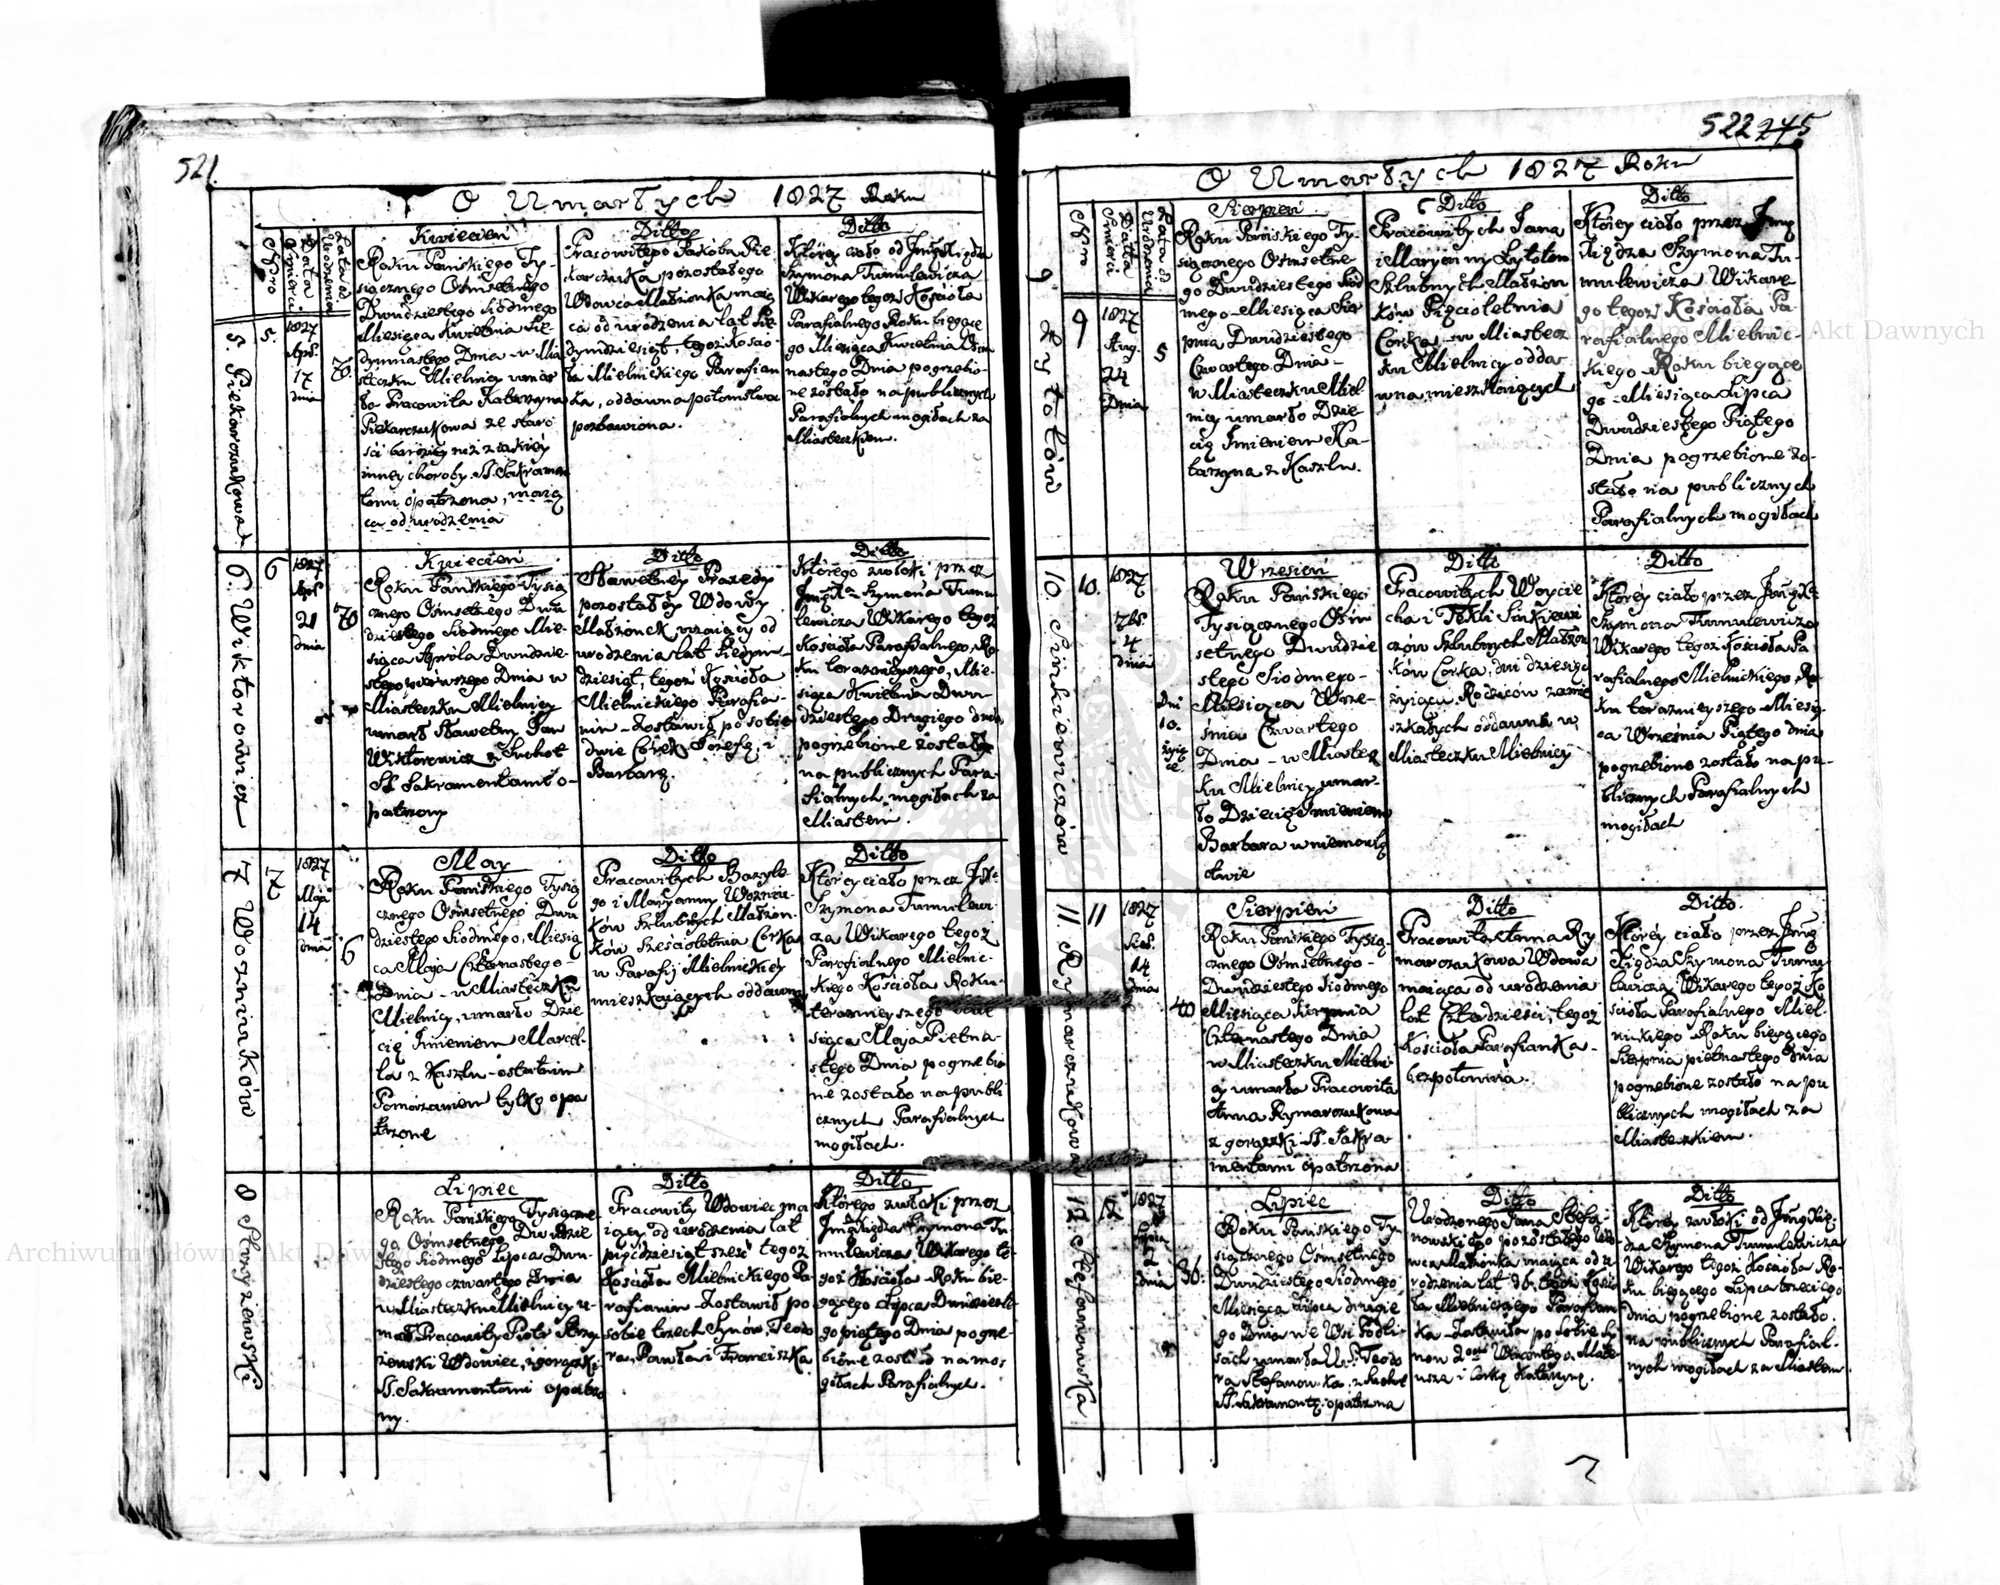 521.
O Umarłych 1827 Roku
Cyfro
Data Smierci
Lata od Urodzenia
5. Piekarczukowa
5.
1827
Apr.
17
dnia
70
Kwiecień
Roku Pańskiego Ty-
siącznego Ośmsetnego
Dwudziestego Siodmego
Miesiąca Kwietnia Sie-
dymnastego Dnia - w Mia
steczku Mielnicy umar
ła Pracowita Katarzyna
Piekarczukowa ze staro
ści bardziey niż z iakiéy
inney choroby. S. Sakramen
tami opatrzona, maią
ca od urodzenia
Ditto
Pracowitego Jakóba Pie-
karczuka pozostałego
Wdowca Małżonka maią
ca od urodzenia lat Sie-
dymdziesiąt, tegoż Kościo-
ła Mielnickiego Parafian
ka, oddawna potomstwa
pozbawiona.
Ditto
Któréy ciało od Jmć Xiędza
Szymona Tumulewicza
Wikarego tegoż Kościoła
Parafialnego Roku bieżące
go Miesiąca Kwietnia Osm
nastego Dnia pogrzebio-
ne zostało na publicznych
Parafialnych mogiłach za
Miasteczkiem.
6. Wiktorowicz
6
1827
Apr.
21
dnia
70
Kwiecień
Roku Pańskiego Tysią
cznego Ośmsetnego Dwu
dziestego Siodmego Mie-
siąca Aprila Dwudzie-
stego pierwszego Dnia w
Miasteczku Mielnicy
umarł Sławetny Jan
Wiktorowicz z Suchot
SS. Sakramentami o-
patrzony
Ditto
Sławetney Praxedy
pozostałéy Wdowy
Małżonek maiący od
urodzenia lat Siedym-
dziesiąt, tegoż Kościoła
Mielnickiego Parafia-
nin - Zostawił po sobie
dwie Córek Józefę, i
Barbarę.
Ditto
Którego zwłoki przez
Jmć Xdza Szymona Tumu
lewicza Wikarego tegoż
Kościoła Parafialnego, Ro-
ku teraznieyszego, Mie-
siąca Kwietnia Dwu-
dziestego Drugiego dnia,
pogrzebione zostały
na publicznych Para-
fialnych mogiłach za
Miastem.
7 Wozniuków
7
1827
Maja
14
dnia
6
May
Roku Pańskiego Tysią
cznego Ośmsetnego Dwu
dziestego Siodmego, Miesią
ca Maja Czternastego -
Dnia - w Miasteczku
Mielnicy, umarło Dzie
cię Jmieniem Marcel-
la z Kaszlu - ostatnim
Pomazaniem tylko opa
trzone
Ditto
Pracowitych Bazyle-
go i Maryanny Woźniu-
ków Szlubnych Małżon-
ków Sześcioletnia Córka
w Parafij Mielnickiéy
mieszkaiących oddawna
Ditto
Któréy ciało przez JX.
Szymona Tumulewi-
cza Wikarego tegoż
Parafialnego Mielnic-
kiego Kościoła Roku-
teraznieyszego Mie
siąca Maja Pietna-
stego Dnia pogrzebio
ne zostało na publi
cznych Parafialnych
mogiłach.
8 Strzyżewski
Lipiec
Roku Pańskiego Tysiączne-
go Ośmsetnego Dwudzie
stego Siodmego Lipca Dwu-
dziestego czwartego Dnia
w Miasteczku Mielnicy u-
marł Pracowity Piotr Strzy
żewski Wdowiec, z gorączki
S. Sakramentami opatrzo
ny.
Ditto
Pracowity Wdowiec ma
iący od urodzenia lat
pięćdziesiąt sześć tegoż
Kościoła Mielnickiego Pa
rafianin - Zostawił po
sobie trzech Synów, Teodo
ra, Pawła i Franciszka
Ditto
Którego zwłoki przez
Jmć Xiędza Szymona Tu
mulewicza Wikarego te-
goż Kościoła - Roku bie-
żącego Lipca Dwudzieste-
go piątego Dnia pogrze-
bione zostało na mo-
giłach Parafialnych.
522 245
O Umarłych 1827 Roku
Cyfro
Datta Smierci
Lata od Urodzenia
9. Łytotów
9
1827
Aug.
24
Dnia
5
Sierpień
Roku Pańskiego Ty-
siącznego Ośmsetne-
go Dwudziestego Sió
mego - Miesiąca Sier
pnia Dwudziestego
Czwartego Dnia -
w Miasteczku Miel
nicy umarło Dzie
cię Jmieniem Ka-
tarzyna z Kaszlu.
Ditto
Pracowitych Jana
i Maryanny Łytotow
Szlubnych Małżon
ków Pięcioletnia
Córka - w Miastecz
ku Mielnicy oddaw
wna mieszkaiących
Ditto
Którey ciało przez Jmć
Xiędza Szymona Tu-
mulewicza Wikare
go tegoż Kościoła Pa-
rafialnego Mielnic-
kiego Roku bieżące
go - Miesiąca Lipca
Dwudziestego Piątego
Dnia pogrzebione zo-
stało na publicznych
Parafialnych mogiłach
10. Sinkiewiczów
10.
1827
7br.
4
dnia
Dni
10.
żyią
ce
Wrzesień
Roku Pańskiego
Tysiącznego Ośm
setnego Dwudzie
stego Siodmego -
Miesiąca Wrze-
śnia Czwartego
Dnia - w Miastecz
ku Mielnicy umar-
ło Dziecię Jmieniem
Barbara w niemowlę
ctwie
Ditto
Pracowitych Woycie
cha i Tekli Sinkiewi
czów Szlubnych Małżon
ków Córka, dni dziesięć
żyiąca, Rodziców zamie
szkałych oddawna w
Miasteczku Mielnicy
Ditto
Któréy ciało przez Jmć Xdz
Szymona Tumulewicza
Wikarego tegoż Kościoła Pa
rafialnego Mielnickiego, Ro-
ku teraznieyszego - Miesią-
ca Września Piątego dnia
pogrzebione zostało na pu-
blicznych Parafialnych
mogiłach
11. Rymarczukowa
11
1827
Sier.
14
dnia
40
Sierpień
Roku Pańskiego Tysią-
cznego Ośmsetnego -
Dwudziestego Siodmego
Miesiąca Sierpnia
Czternastego Dnia
w Miasteczku Mielni-
cy umarła Pracowita
Anna Rymarczukowa
z gorączki S. Sakra-
mentami opatrzona
Ditto
Pracowita Anna Ry
marczukowa Wdowa
maiąca od urodzenia
lat Czterdzieści, tegoż
Kościoła Parafianka -
bezpotomna.
Ditto
Któréy ciało przez Jmć
Xiędza Szymona Tumu
lewicza Wikarego tegoż Ko
ścioła Parafialnego Miel-
nickiego Roku bieżącego
Sierpnia pietnastego dnia
pogrzebione zostało na pu
blicznych mogiłach za
Miasteczkiem.
12 Stefanowska
12
1827
Lipca
2
dnia
36.
Lipiec
Roku Pańskiego Ty-
siącznego Ośmsetnego
Dwudziestego Siodmego
Miesiąca Lipca drugie
go Dnia we Wsi Podli-
sach umarła Ur. Teodo
ra Stefanowska z Suchot
S. Sakramenta opatrzona
Ditto
Urodzonego Jana Stefa-
nowskiego pozostałego Wdo
wca Małżonka maiąca od u
rodzenia lat 36. tegoż Kościo
ła Mielnickiego Parafian
ka - Zostawiła po sobie Sy
now 2 Wincentego, Mate
usza i Córkę Katarzynę.
Ditto
Któréy zwłoki od Jmć Xię-
dza Szymona Tumulewicza
Wikarego tegoż Kościoła Ro-
ku bieżącego Lipca trzeciego
Dnia pogrzebione zostało.
na publicznych Parafial-
nych mogiłach za Miastem
Archiwum Główne Akt Dawnych
Archiwum Główne Akt Dawnych